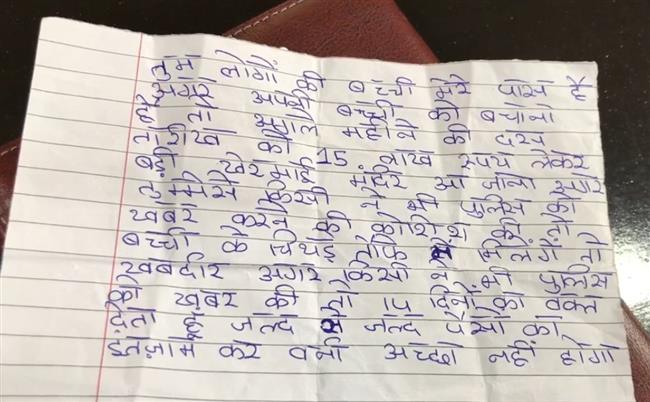 तुम लोगों की बच्ची मेरे पास है
अगर अपनी बच्ची को बचाना
है तो अगले महीने की दस
तारीख को 15 लाख रूपय लेकर
बड़ी खेरमाई मंदिर आ जाना अगर
तुममेसे किसी ने भी पुलिस को
खबर करने की कोशिश की तो
बच्ची के चिथड़े मिलेंगे तो
खबरदार अगर किसी ने भी पुलिस
को खबर की तो 14 दिनों का वक्त
देता हूँ जल्द से जल्द पैसो का
इतज़ाम कर वर्ना अच्छा नही होगा